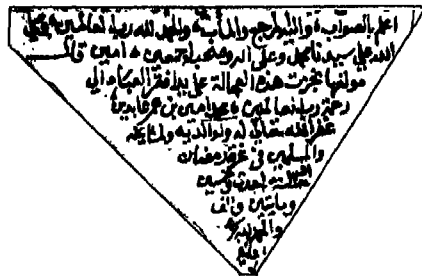 اعلم بالصواب واليه المرجع والمآب والحمد لله رب العالمين وصلى
الله على سيدنا محمد وعلى اله وصحبه اجمعين امين قال
مولفها نجزت هذه العجالة على يد افقر العباد الى
رحمة رب العالمين محمد امين بن عمر عابدين
غفر الله تعالى له ولوالديه ولمشايخه
والمسلمين في غرة رمضان
سنة احدى وخمسين
ومايتين والف
والحمد لله